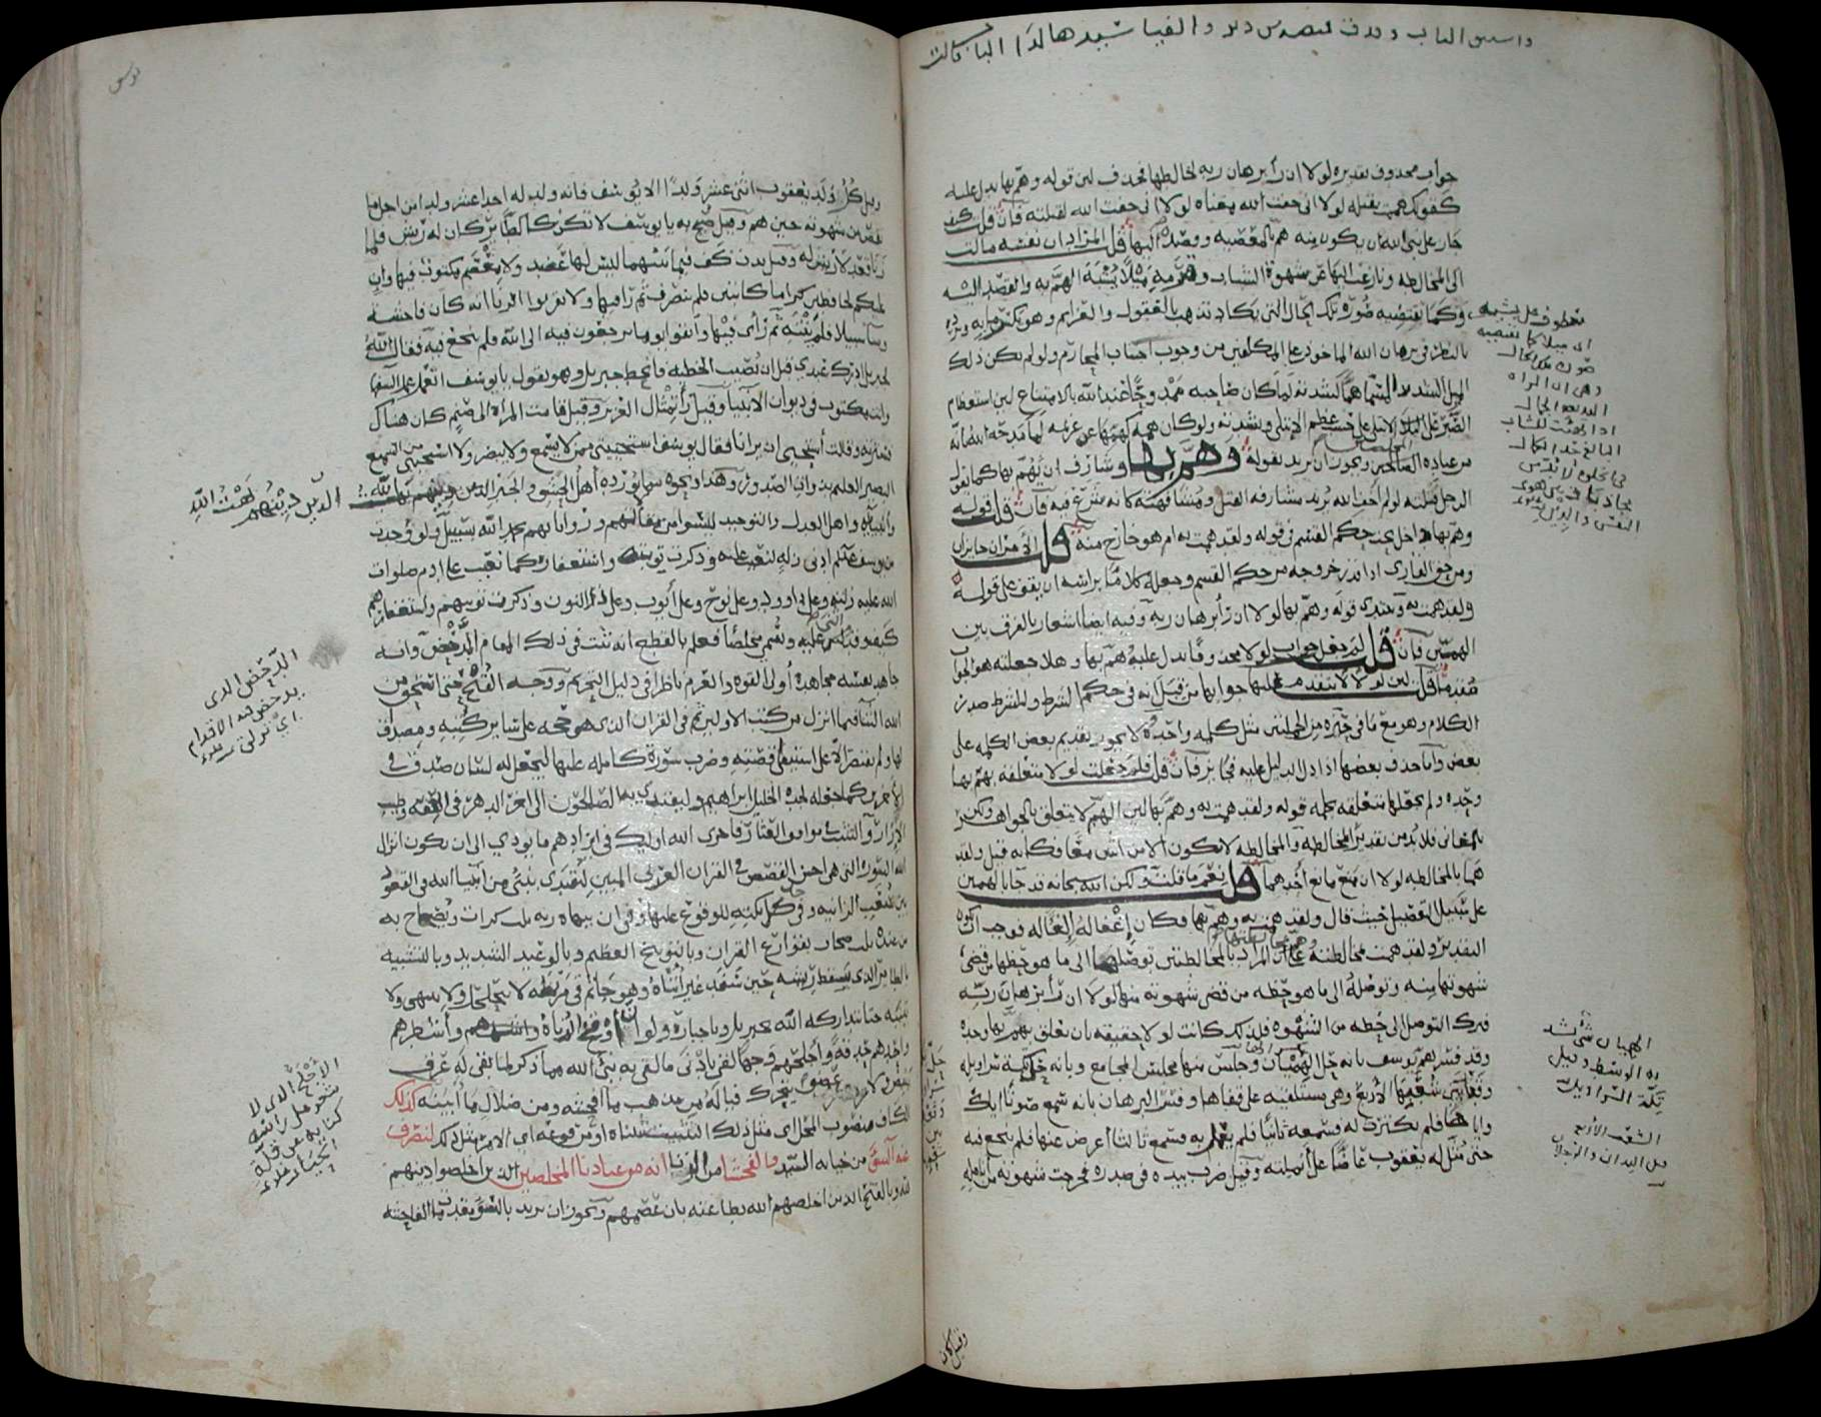 واستبقا الباب وقدت قميصه من دبر والفيا سيدها لدا الباب قالت
جواب محذوف تقديره لولا ان رأى برهان ربه لخالطها فحذف لان قوله وهم بها يدل عليه
كقولك هممت بقتله لولا انى خفت الله معناه لولا انى خفت الله لقتلته فان قلت كيف
جاز على نبى الله ان يكون منه هم بالمعصية وقصد اليها قلت المراد ان نفسه مالت
الى المخالطة ونازعت اليها عن شهوة الشباب وقرمه ميلا يشبه الهم به والقصد اليه
وكما تقتضيه صورة تلك الحال التى تكاد تذهب بالعقول والعزائم وهو يكسر ما به ويرده
بالنظر فى برهان الله الماخوذ على المكلفين من وجوب اجتناب المحارم ولو لم يكن ذلك
الميل الشديد المسمى هما لشدته لما كان صاحبه ممدوحا عند الله بالامتناع لان استعظام
الصبر على الابتلاء على حسب عظم الابتلا وشدته ولو كان همه كهمها عن عزيمة لما مدحه الله بانه
من عباده المخلصين ويجوز ان يريد بقوله وهم بها وشارف ان يهم بها كما يقول
الرجل قتلته لو لم اخف الله يريد مشارفة القتل ومشافهته كانه شرع فيه فان قلت قوله
وهم بها داخل تحت حكم القسم فى قوله ولقد همت به ام هو خارج منه قلت الامران جايزان
ومن حق القارى اذا قدر خروجه من حكم القسم وجعله كلاما براسه ان يقف على قوله
ولقد همت به ويبتدى قوله وهم بها لولا ان رأى برهان ربه وفيه ايضا اشعار بالفرق بين
الهمين فان قلت لم جعل جواب لولا محذوفا يدل عليه هم بها وهلا جعلته هو الجواب
مقدما قلت لان لولا لا يتقدم عليها جوابها من قبل انه فى حكم الشرط وللشرط صدر
الكلام وهو مع ما فى حيزه من الجملتين مثل كلمة واحدة ولا يجوز تقديم بعض الكلمة على
بعض واما حذف بعضها اذا دل الدليل عليه فجايز فان قلت فلم جعلت لولا متعلقة بهم بها
وحده ولم تجعلها متعلقة بجملة قوله ولقد همت به وهم بها لان الهم لا يتعلق بالجواهر ولكن
بالمعانى فلا بد من تقدير المخالطة والمخالطة لا تكون الا من اثنين معا فكانه قيل ولقد
هما بالمخالطة لولا ان منع مانع احدهما قلت نعم ما قلت ولكن الله سبحانه قد جا بالهمين
على سبيل التفصيل حيث قال ولقد همت به وهم بها فكان اغفاله الغا له فوجب ان يكون
التقدير ولقد همت بمخالطته وهم بمخالطتها على ان المراد بالمخالطتين توصلها الى ما هو حظها من قضى
شهوتها منه وتوصله الى ما هو حظه من قضى شهوته منها لولا ان رأى برهان ربه
فترك التوصل الى حظه من الشهوة فلذلك كانت لولا حقيقة بان تعلق بهم بها وحده
وقد فسر هم يوسف بانه حل الهميان وجلس منها مجلس المجامع وبانه حل تكة سراويله
وقعد بين شعبها الاربع وهى مستلقية على قفاها وفسر البرهان بانه سمع صوتا اياك
واياها فلم يكترث له فسمعه ثانيا فلم يعمل به فسمع ثالثا اعرض عنها فلم ينجع فيه
حتى مثل له يعقوب عاضا على انملته وقيل ضرب بيده فى صدره فخرجت شهوته من انامله
معطوف على يشبه
اى ميلا كما تقتضيه
صورة تلك الحال
وهى ان المراة
البديعة الجمال
الهميان شى يشد
به الوسط وقيل
تكة السراويل
الشعب الاربع
هى اليدان والرجلان
وقيل كل
وقيل كل ولد يعقوب اثنى عشر ولدا الا يوسف فانه ولد له احد عشر ولدا من اجل ما
نقص من شهوته حين هم وقيل صيح به يا يوسف لا تكن كالطاير كان له ريش فلما
زنا قعد لا ريش له وقيل بدت كف فيما بينهما ليس لها عضد ولا معصم مكتوب فيها وان
عليكم لحافظين كراما كاتبين فلم ينصرف ثم راى فيها ولا تقربوا الزنا انه كان فاحشة
وسا سبيلا فلم ينته ثم رأى فيها واتقوا يوما ترجعون فيه الى الله فلم ينجع فيه فقال الله
لجبريل ادرك عبدى قبل ان يصيب الخطية فانحط جبريل وهو يقول يا يوسف اتعمل عمل السفها
وانت مكتوب فى ديوان الانبيا وقيل رأى تمثال العزيز وقيل قامت المراة الى صنم كان هناك
فسترته وقالت استحيى ان يرانا فقال يوسف استحييتى ممن لا يسمع ولا يبصر ولا استحيى من السميع
البصير العليم بذوات الصدور وهذا ونحوه مما يورده اهل الحشو والجبر الذين دينهم بهت الله
وانبيائه واهل العدل والتوحيد ليسوا من مقالاتهم ورواياتهم بحمد الله بسبيل ولو وجدت
من يوسف عليه السلم ادنى زلة لنعيت عليه وذكرت توبته واستغفاره كما نعيت على ادم صلوات
الله عليه زلته وعلى داوود وعلى نوح وعلى أيوب وعلى ذى النون وذكرت توبتهم واستغفارهم
كيف وقد اثنى عليه وسمى مخلصا فعلم بالقطع انه ثبت فى ذلك المقام الدحض وانه
جاهد نفسه مجاهدة أولى القوة والعزم ناظرا فى دليل التحريم ووجه القبح حتى استحق من
الله الثنا فيما انزل من كتب الاولين ثم فى القران الذى هو حجة على ساير كتبه ومصدق
لها ولم يقتصر الا على استيفا قصته وضرب سورة كاملة عليها ليجعل له لسان صدق فى
الاخرين كما جعله لجده الخليل ابراهيم وليقتدى به الصالحون الى اخر الدهر فى العفة وطيب
الازار والتثبت فى مواقف العثار فاخزى الله اوليك فى ايرادهم ما يودى الى ان يكون انزال
الله السورة التى هى احسن القصص فى القران العربى المبين ليقتدى بنبى من انبيا الله فى القعود
بين شعب الزانية وفى حل تكته للوقوع عليها وفى ان ينهاه ربه ثلث كرات ويصاح به
من عنده ثلث صيحات بقوارع القران وبالتوبيخ العظيم وبالوعيد الشديد وبالتشبيه
بالطاير الذى يسقط ريشه حين سفد غير أنثاه وهو جاثم فى مربضه لا يتحلحل ولا ينتهى ولا
ينتبه حتى يتداركه الله بجبريل وباجباره ولو ان اوقح الزناة واشطرهم
واحدهم حدقة وأجلحهم وجها لقى بادنى ما لقى به نبى الله مما ذكروا لما بقى له عرق
ينبض ولا عضو يتحرك فيا له من مذهب ما افحشه ومن ضلال ما أبينه كذلك
الكاف منصوب المحل اى مثل ذلك التثبيت ثبتناه او مرفوعه اى الامر مثل ذلك لنصرف
عنه السو من خيانة السيد والفحشا من الزنا انه من عبادنا المخلصين الذين اخلصوا دينهم
لله وبالفتح الذين اخلصهم الله لطاعته بان عصمهم ويجوز ان يريد بالسو مقدمات الفاحشة
الذين دينهم بهت الله
الدحض الذى
يدحض فيه الاقدام
اى تزلق
الاجلح الذى لا
شعر على راسه
كناية عن قلة
الحيا